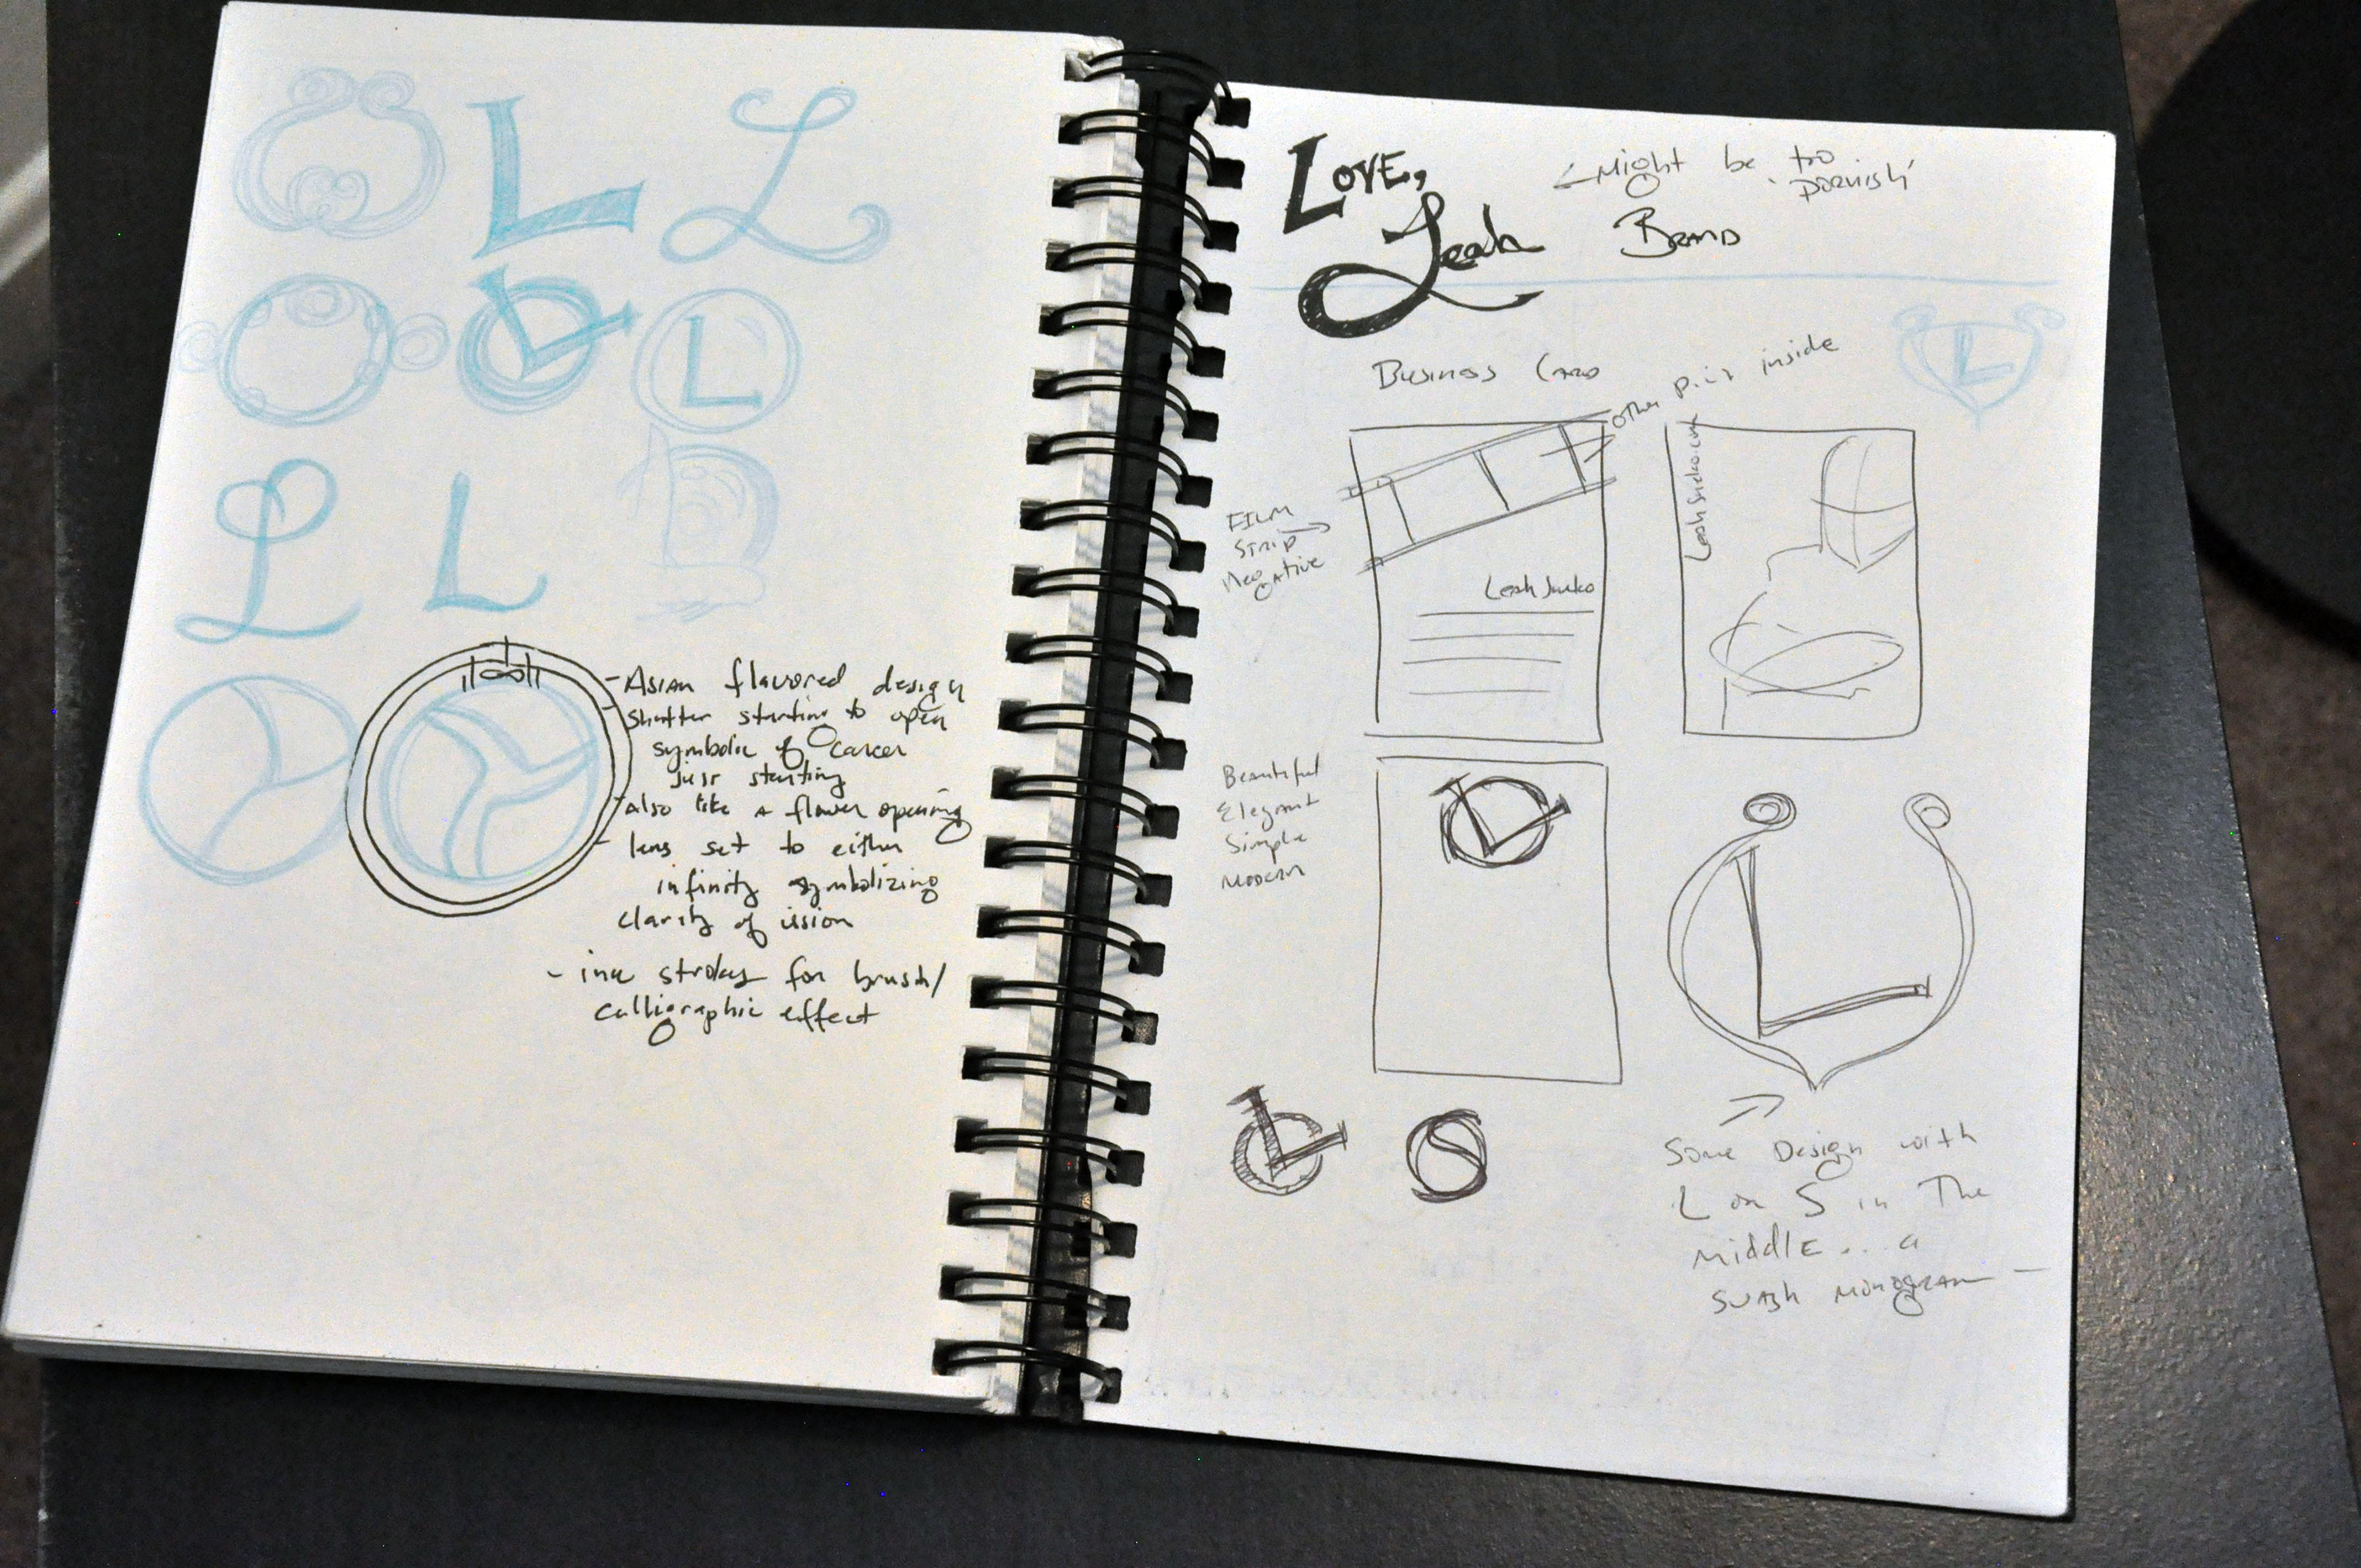 L
L
L
L
L
L
- Asian flavored design
shutter starting to open
symbolic of career
just starting
- also like a flower opening
- lens set to either
infinity symbolizing
clarity of ission
- ink strokes for brush/
calligraphic effect
LOVE,
Leah
← Might be too
'pornish'
BRAND
L
Business CARD
other pics inside
FILM
STRIP
Negative
Leah
Leah
Beautiful
Elegant
Simple
Modern
L
L
L
S
Some Design with
L or S in The
MiddlE.. a
swash monogram -